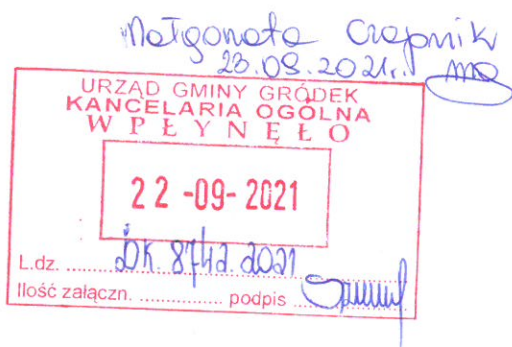 Małgorzata Czapnik
23.09.2021r.
URZĄD GMINY GRÓDEK
KANCELARIA OGÓLNA
WPŁYNĘŁO
22 -09- 2021
L.dz. .......... 2021
Ilość załączn. .............. podpis